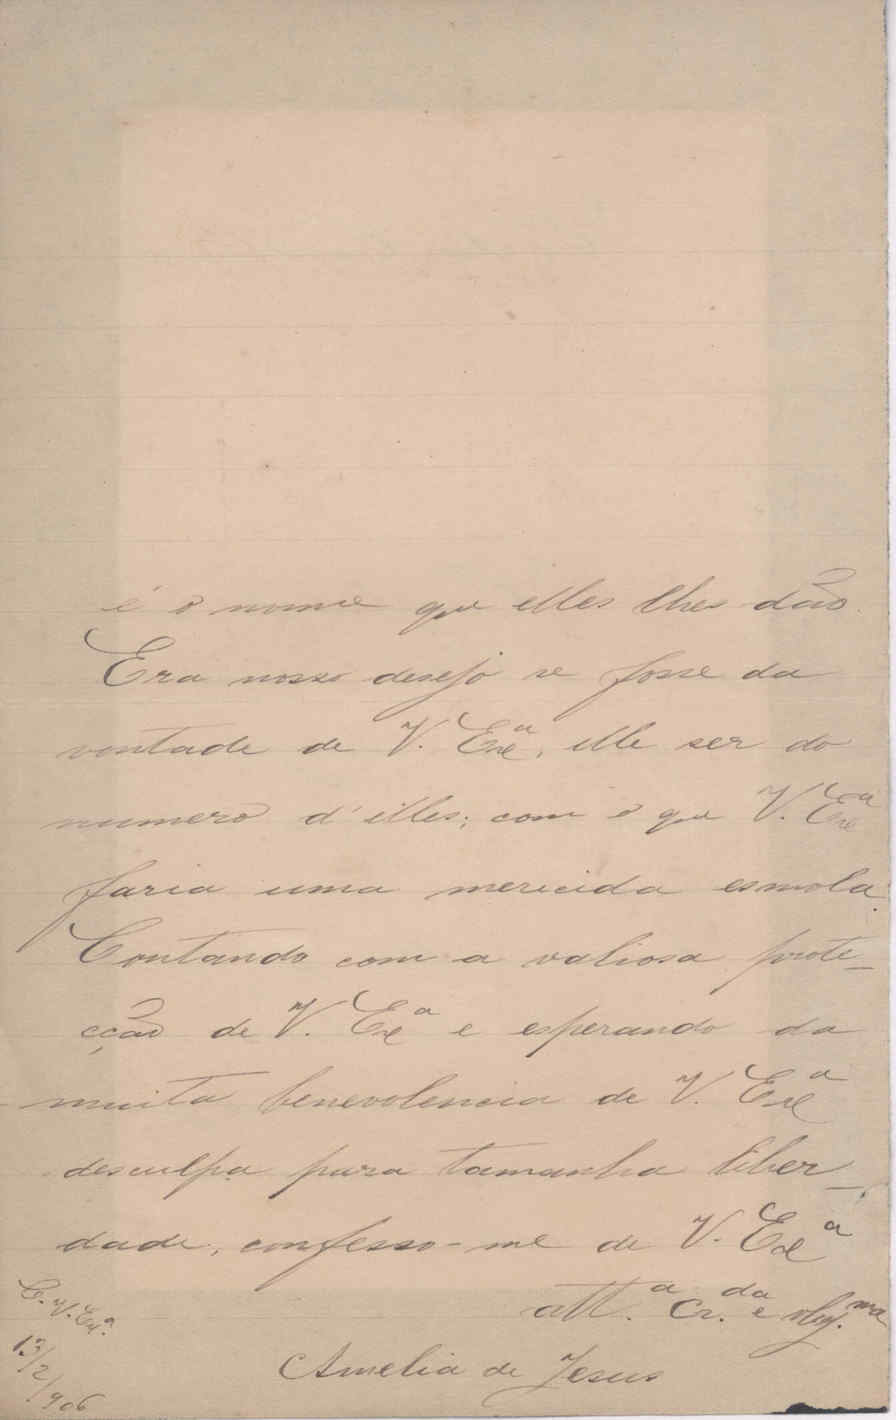 é o nome que elles lhes dão.
Era nosso desejo se fosse da
vontade de V. Exª, elle ser do
numero d'elles; com o que V. Exª
faria uma merecida esmola.
Contando com a valiosa prote-
cção de V. Exª e esperando da
muita benevolencia de V. Exª
desculpa para tamanha liber-
dade, confesso-me de V. Exª
attª. cr.da e obg.ma
Amelia de Jesus
C. V. Exª.
13/2/906